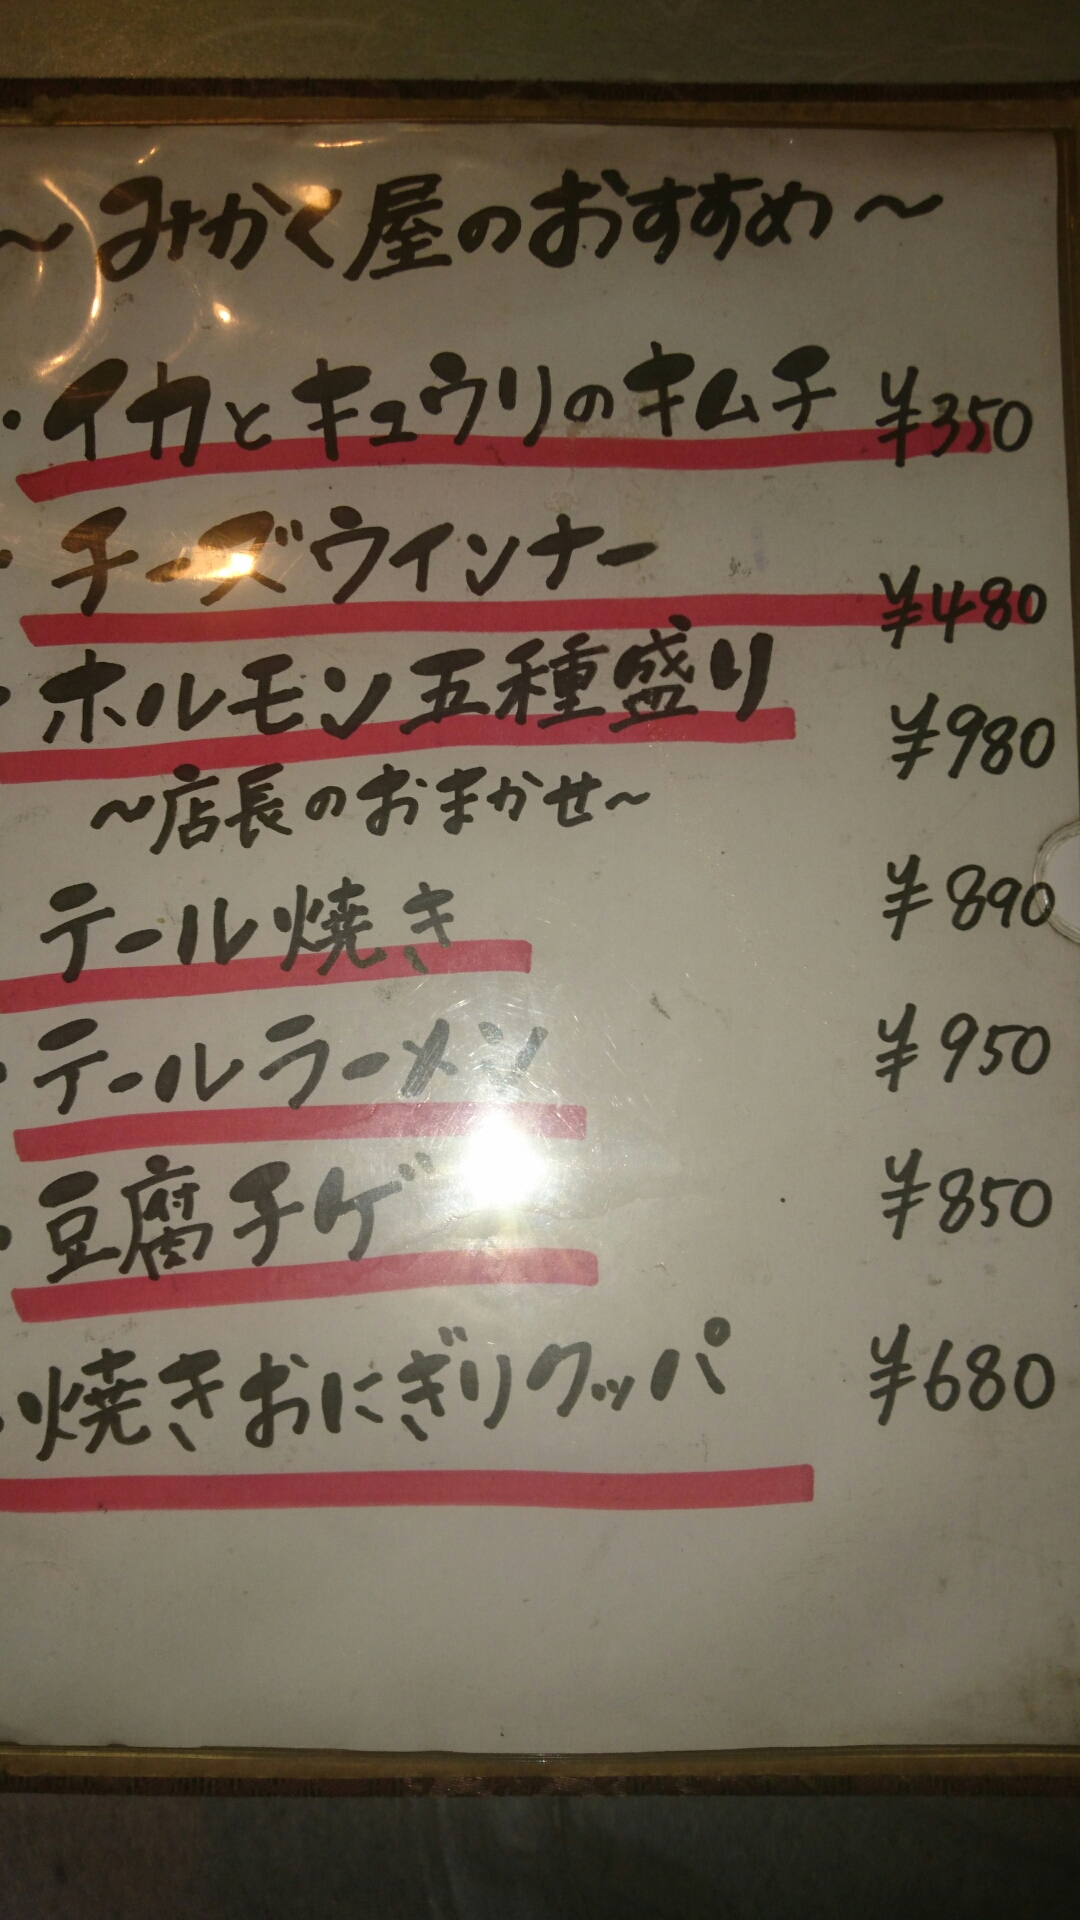 ～みかく屋のおすすめ～
・イカとキュウリのキムチ ¥350
・チーズウインナー ¥480
・ホルモン五種盛り ¥980
～店長のおまかせ～
テール焼き ¥890
・テールラーメン ¥950
・豆腐チゲ ¥850
・焼きおにぎりクッパ ¥680